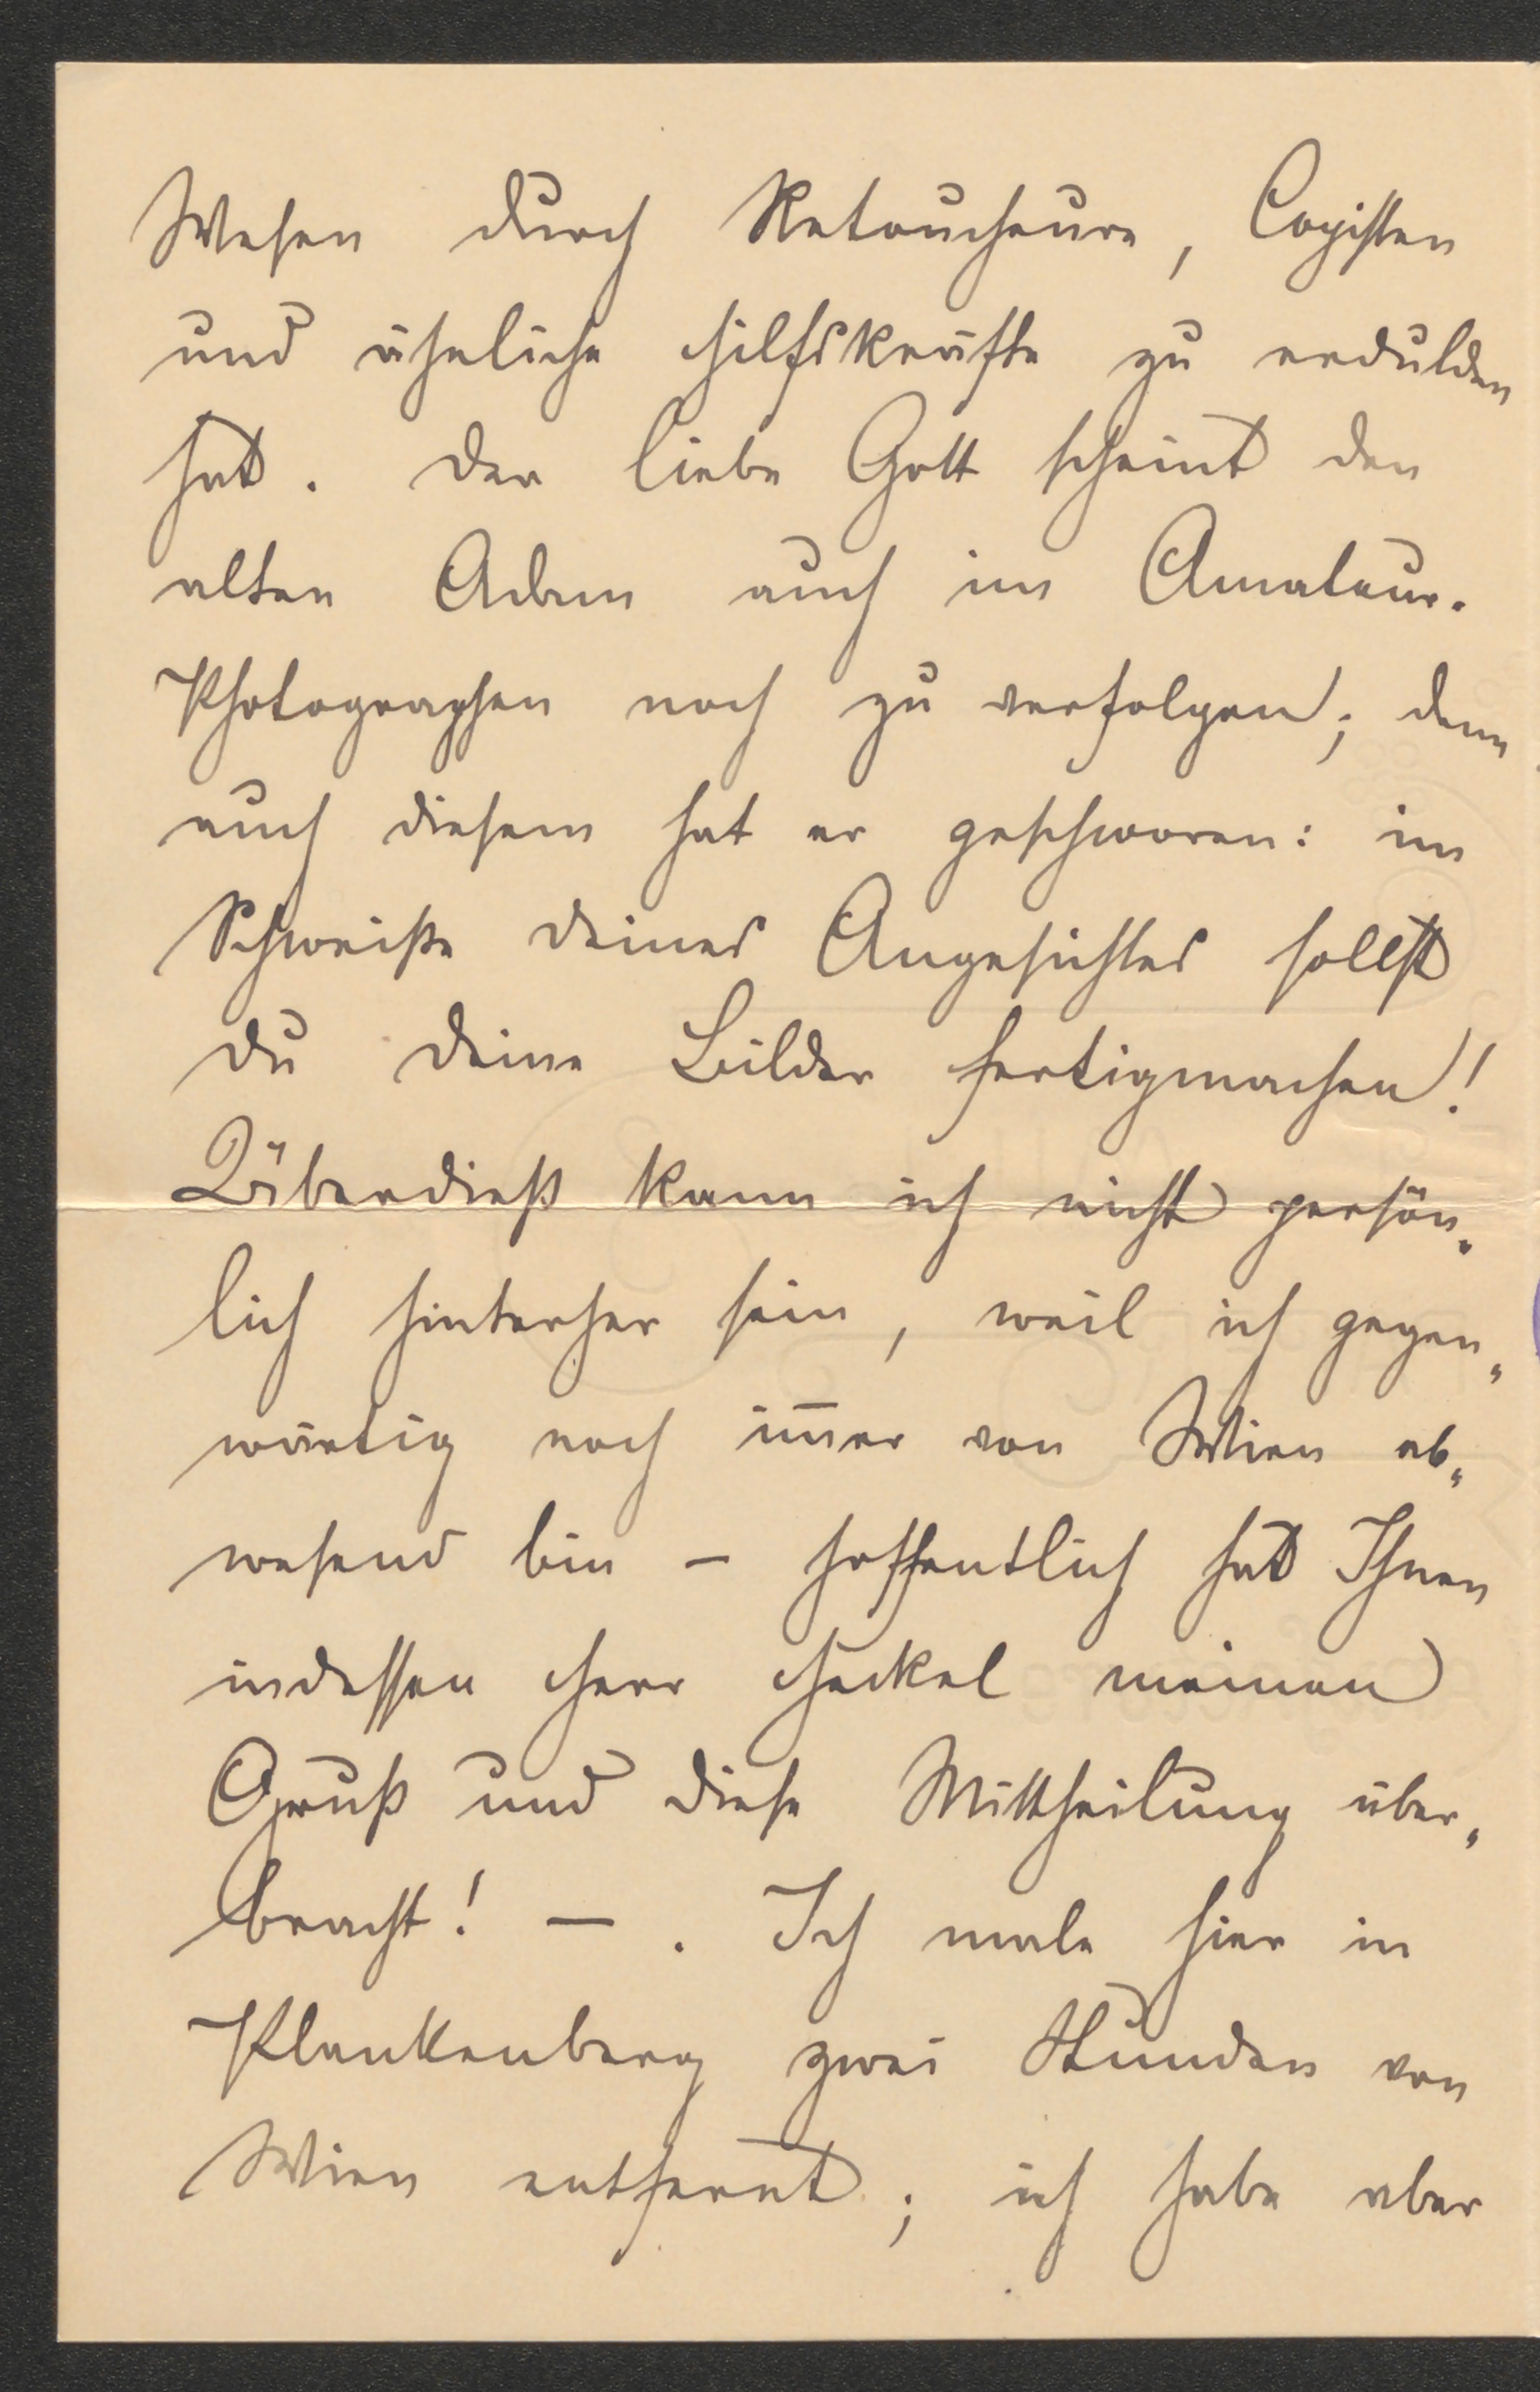 Wesen durch Retoucheure, Copisten
und ähnliche Hilfskräfte zu erdulden
hat. Der liebe Gott scheint den
alten Adam auch im Amateur-
Photographen noch zu verfolgen; denn
auch diesem hat er geschworen: im
Schweiße deines Angesichtes sollst
du deine Bilder fertigmachen!
Überdieß kann ich nicht persön„
lich hinterher sein, weil ich gegen„
wärtig noch im̅er von Wien ab„
wesend bin – hoffentlich hat Ihnen
indessen Herr Heckel meinen
Gruß und diese Mittheilung über„
bracht! – . Ich male hier in
Plankenberg zwei Stunden von
Wien entfernt; ich habe aber